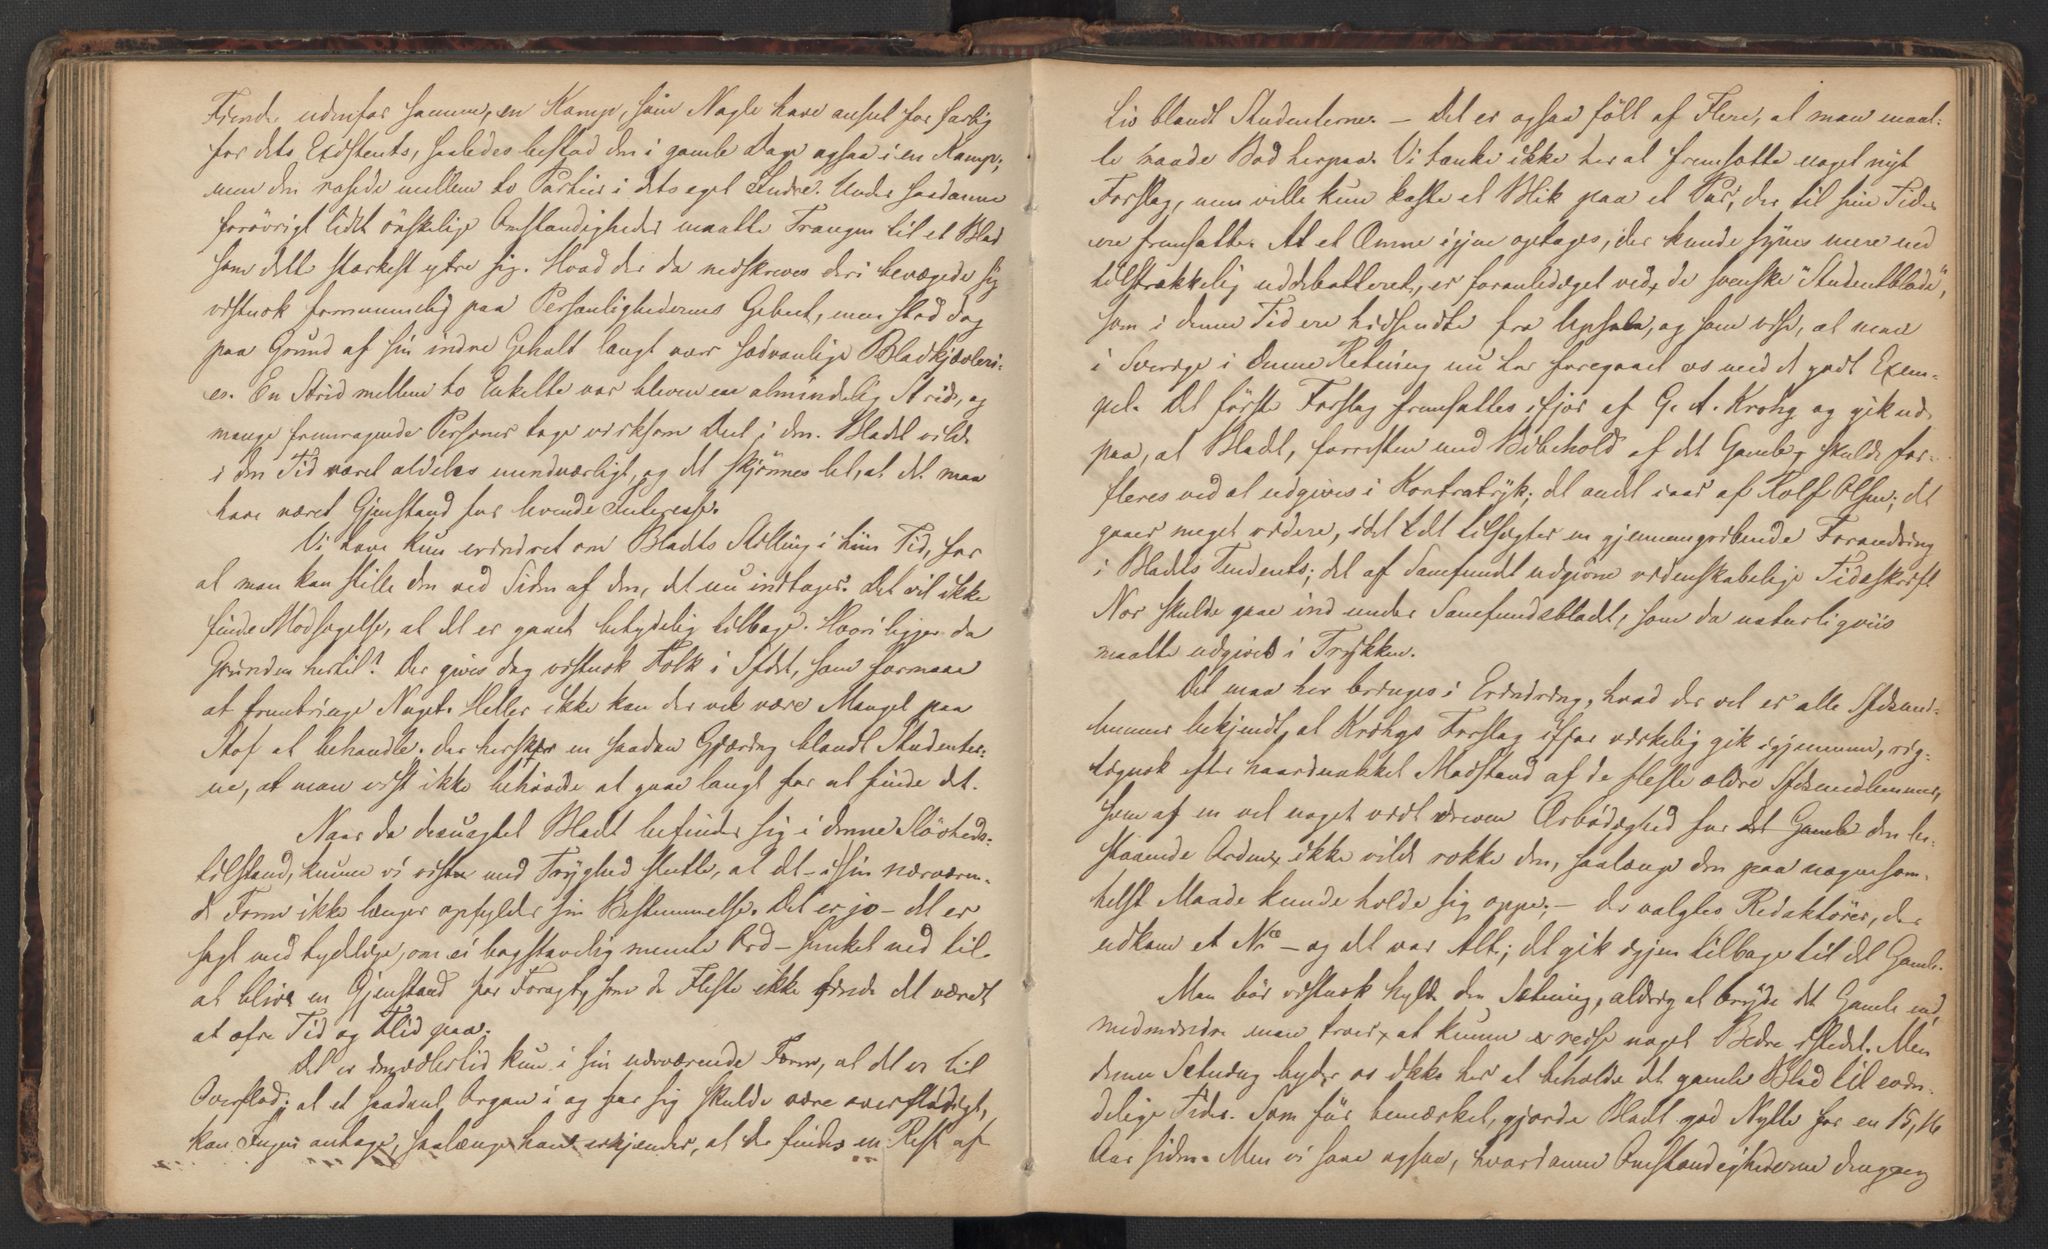 Fiender udenfor samme, en Kamp, som Nogle have anseet for farlig
for dets Existents, saaledes bestod den i gamle Dage ogsaa i en Kamp;
men den rasede mellem to Partier i dets eget Indre. Under saadanne
forövrigt lidt önskelige Omstændigheder maatte Trangen til et Blad
som dette stærkest yttre sig. Hvad der da nedskreves deri bevægede sig
vistnok fornemmelig paa Personlighedernes Gebeet, men stod dog
paa Grund af sin indre Gehalt langt over sædvanlige Bladkjævleri-
er. En Strid mellem to Enkelte var bleven en almindelig Strid, og
mange fremragende Personer toge virksom Deel i den. Bladet vilde
i den Tid været aldeles uundværligt, og det skjönnes let, at det maa
have været Gjenstand for levende Interesse.
Vi have kun erindret om Bladets Stilling i hiin Tid, for
at man kan stille den ved Siden af den, det nu indtager. Det vil ikke
finde Modsigelse, at det er gaaet betydelig tilbage. Hvori ligger da
Grunden hertil? Der gives dog vistnok Folk i Sfdet, som formaae
at frembringe Noget. Heller ikke kan der vel være Mangel paa
Stof at behandle. der hersker en saadan Gjæring blandt Studenter-
ne, at man vist ikke behövde at gaae langt for at finde det.
Naar da desuagtet Bladet befinder sig i denne Slövheds-
tilstand, kunne vi vistn med Tryghed slutte, at det – i sin nærværen-
de Form ikke længer opfylder sin Bestemmelse. Det er jo – det er
sagt med tydelige, om ei bogstavelig meente Ord – sunket ned til
at blive en Gjenstand for Foragt, som de Fleste ikke finde det værdt
at ofre Tid og Flid paa.
Det er imidlertid kun i sin nærværende Form, at det er til
Overflod; at et saadant Organ i og for sig skulde være overflödigt,
kan Ingen antage, saalænge han erkjender, at der findes en Rest af
Liv blandt Studenterne. – Det er ogsaa fölt af Flere, at man maat-
te raade Bod herpaa. Vi tænke ikke her at fremsætte noget nyt
Forslag, men ville kun kaste et Blik paa et Par, der til sine Tider
ere fremsatte. At et Emne igjen optages, der kunde synes mere end
tilstrækkelig uddebatteret, er foranlediget ved de svenske "Studentblade",
som i denne Tid ere hidsendte fra Upsala, og som vise, at man
i Sverige i denne Retning nu har foregaaet os med et godt Exem-
pel. Det förste Forslag fremsattes ifjor af G. A. Krohg og gik ud
paa, at Bladet, forresten med Bibehold af det Gamle, skulde for-
fleres ved at udgives i Kontratryk; det andet iaar af Rolf Olsen; det
gaaer meget videre, idet det tilsigter en gjennemgribende Forandring
i Bladets Tendents; det af Samfundet udgivne videnskabelige Tidsskrift
Nor skulde gaae ind under Samfundsbladet, som da naturligviis
maatte udgives i Trykken.
Det maa her bringes i Erindring, hvad der vel er alle Sfdsmed-
lemmer bekjendt, at Krohgs Forslag ifjor virkelig gik igjennem, rig-
tignok efter haardnakket Modstand af de fleste ældre Sfdsmedlemmer,
som af en vel noget vidt dreven Ærbödighed for det Gamle den be-
staaende Orden ikke vilde rokke den, saalænge den paa nogensom-
helst Maade kunde holde sig oppe; – der valgtes Redaktörer, der
udkom et No – og det var Alt; det gik igjen tilbage til det Gamle.
Man bör vistnok hylde den Sætning, aldrig at bryde det Gamle ned,
medmindre man troer at kunne reise noget Bedre istedet. Men
denne Sætning byder os ikke her at beholde det gamle Blad til evin-
delige Tider. Som för bemærket, gjorde Bladet god Nytte for en 15, 16
Aar siden. Men vi saae ogsaa, hvordanne Omstændighederne dengang